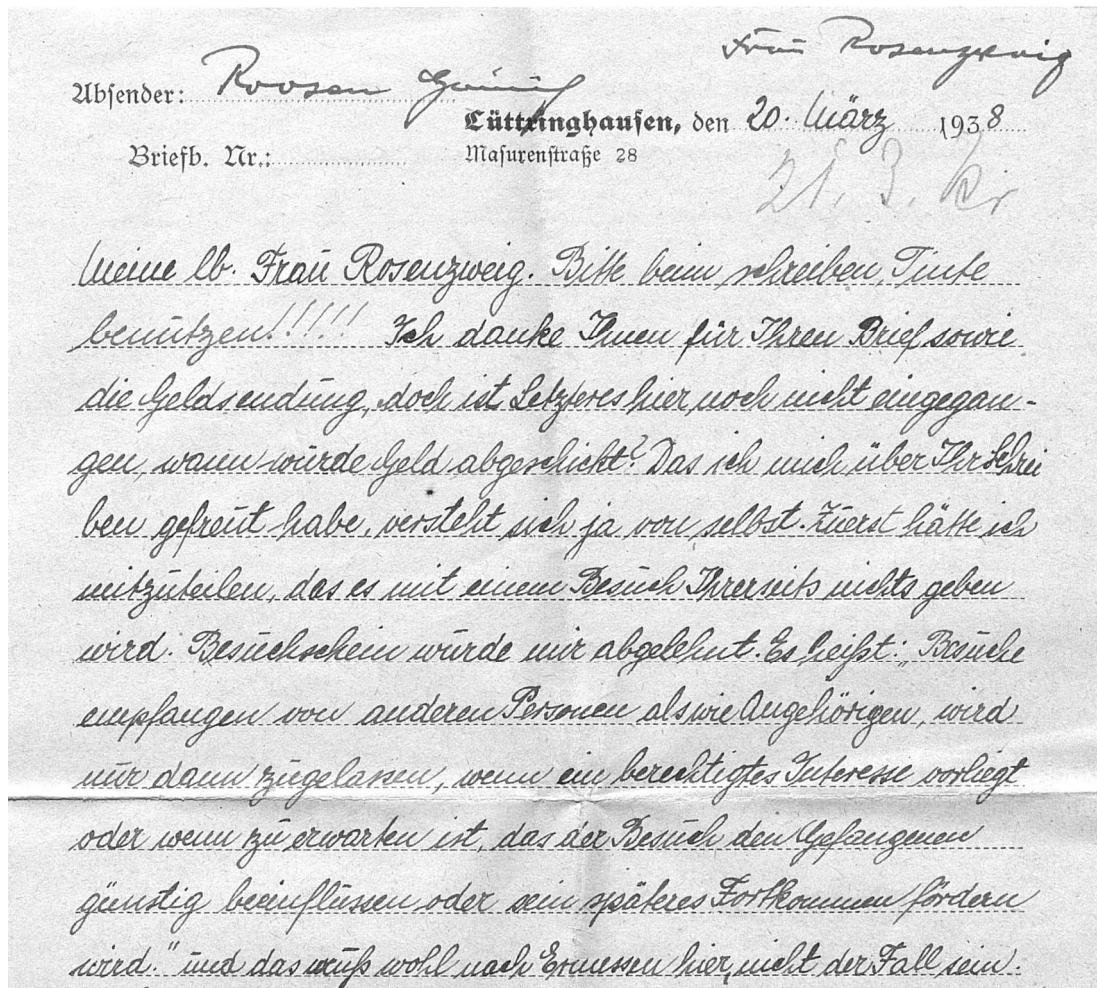 Frau Rosenzweig
Absender: Roosen
Lüttringhausen, den 20. März 1938
Briefb. Nr.: Masurenstraße 28
21. 3. Kr
Meine lb. Frau Rosenzweig. Bitte beim schreiben, Tinte
benutzen!!!!!! Ich danke Ihnen für Ihren Brief sowie
die Geldsendung, doch ist Letzteres hier noch nicht eingegan-
gen, wann wurde Geld abgeschickt? Das ich mich über Ihr Schrei
ben gefreut habe, versteht sich ja von selbst. Zuerst hätte ich
mitzuteilen, das es mit einem Besuch Ihrerseits nichts geben
wird. Besuchschein wurde mir abgelehnt. Es heißt: „Besuche
empfangen von anderen Personen als wie Angehörigen, wird
nur dann zugelassen, wenn ein berechtigtes Interesse vorliegt
oder wenn zu erwarten ist, das der Besuch den Gefangenen
günstig beeinflussen oder sein späteres Fortkommen fördern
wird." und das muß wohl nach Ermessen hier, nicht der Fall sein.